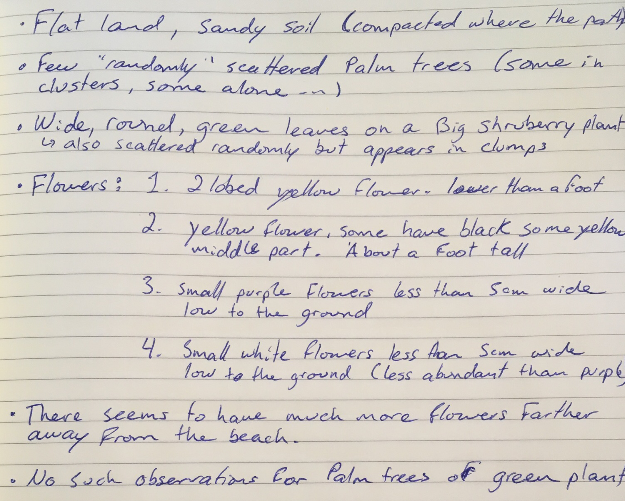 • Flat land, sandy soil (compacted where the path
• Few "randomly" scattered Palm trees (some in
clusters, some alone ...)
• Wide, round, green leaves on a Big shruberry plant
↳ also scattered randomly but appears in clumps
• Flowers: 1. 2 lobed yellow flower - lower than a foot
2. yellow flower, some have black some yellow
middle part. About a Foot tall
3. Small purple Flowers less than 5cm wide
low to the ground
4. Small white flowers less than 5cm wide
low to the ground (less abundant than purple)
• There seems to have much more flowers Farther
away From the beach.
• No such observations for Palm trees of green plant